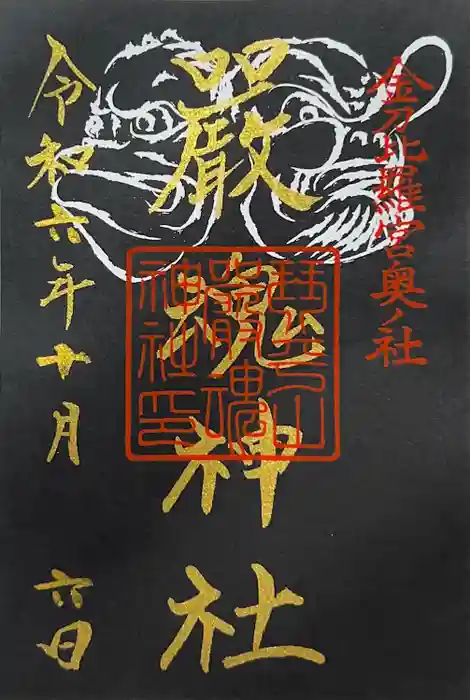 金刀比羅宮奥ノ社
嚴魂神社
琴平山
嚴魂
神社印
令和六年十月 六日